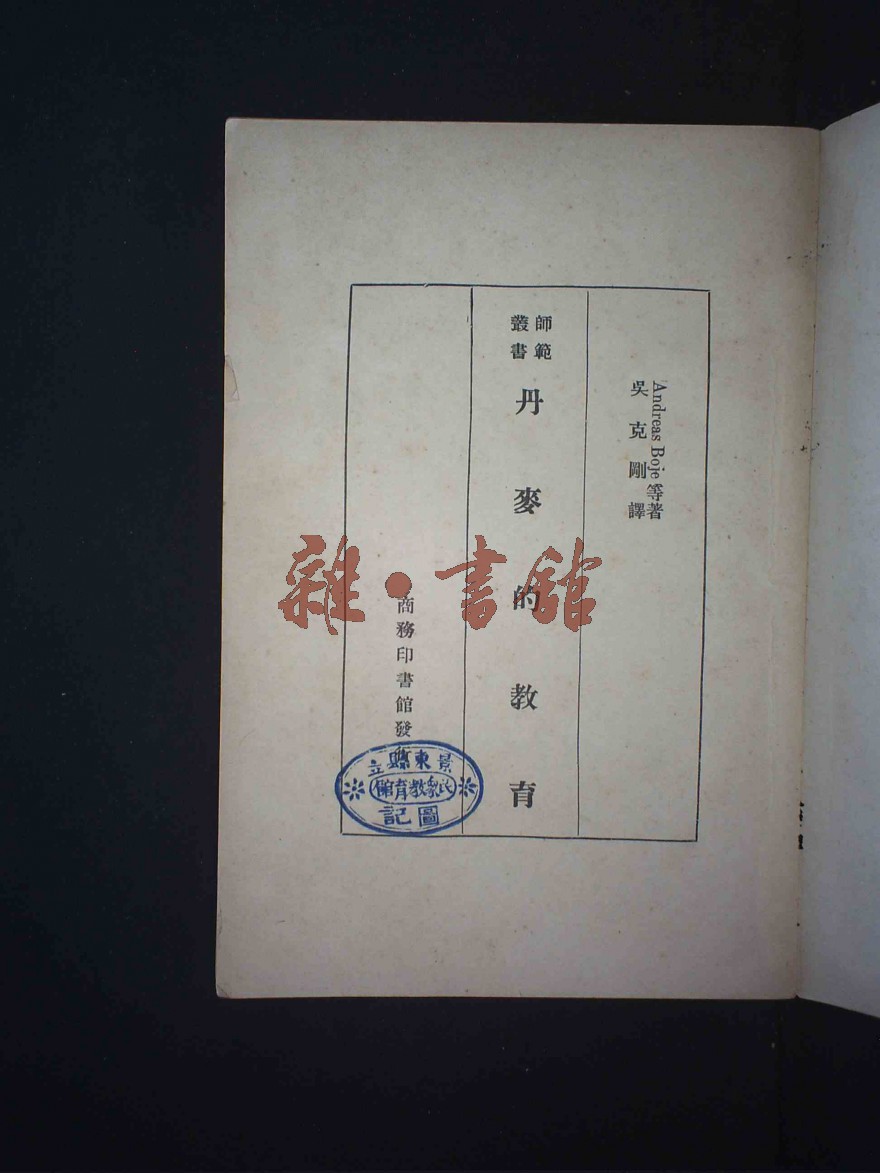 Andreas Boje 等著
吳克剛譯
師範
叢書
丹麥的教育
商務印書館發行
景東縣立
民衆教育館
圖記
雜·書館